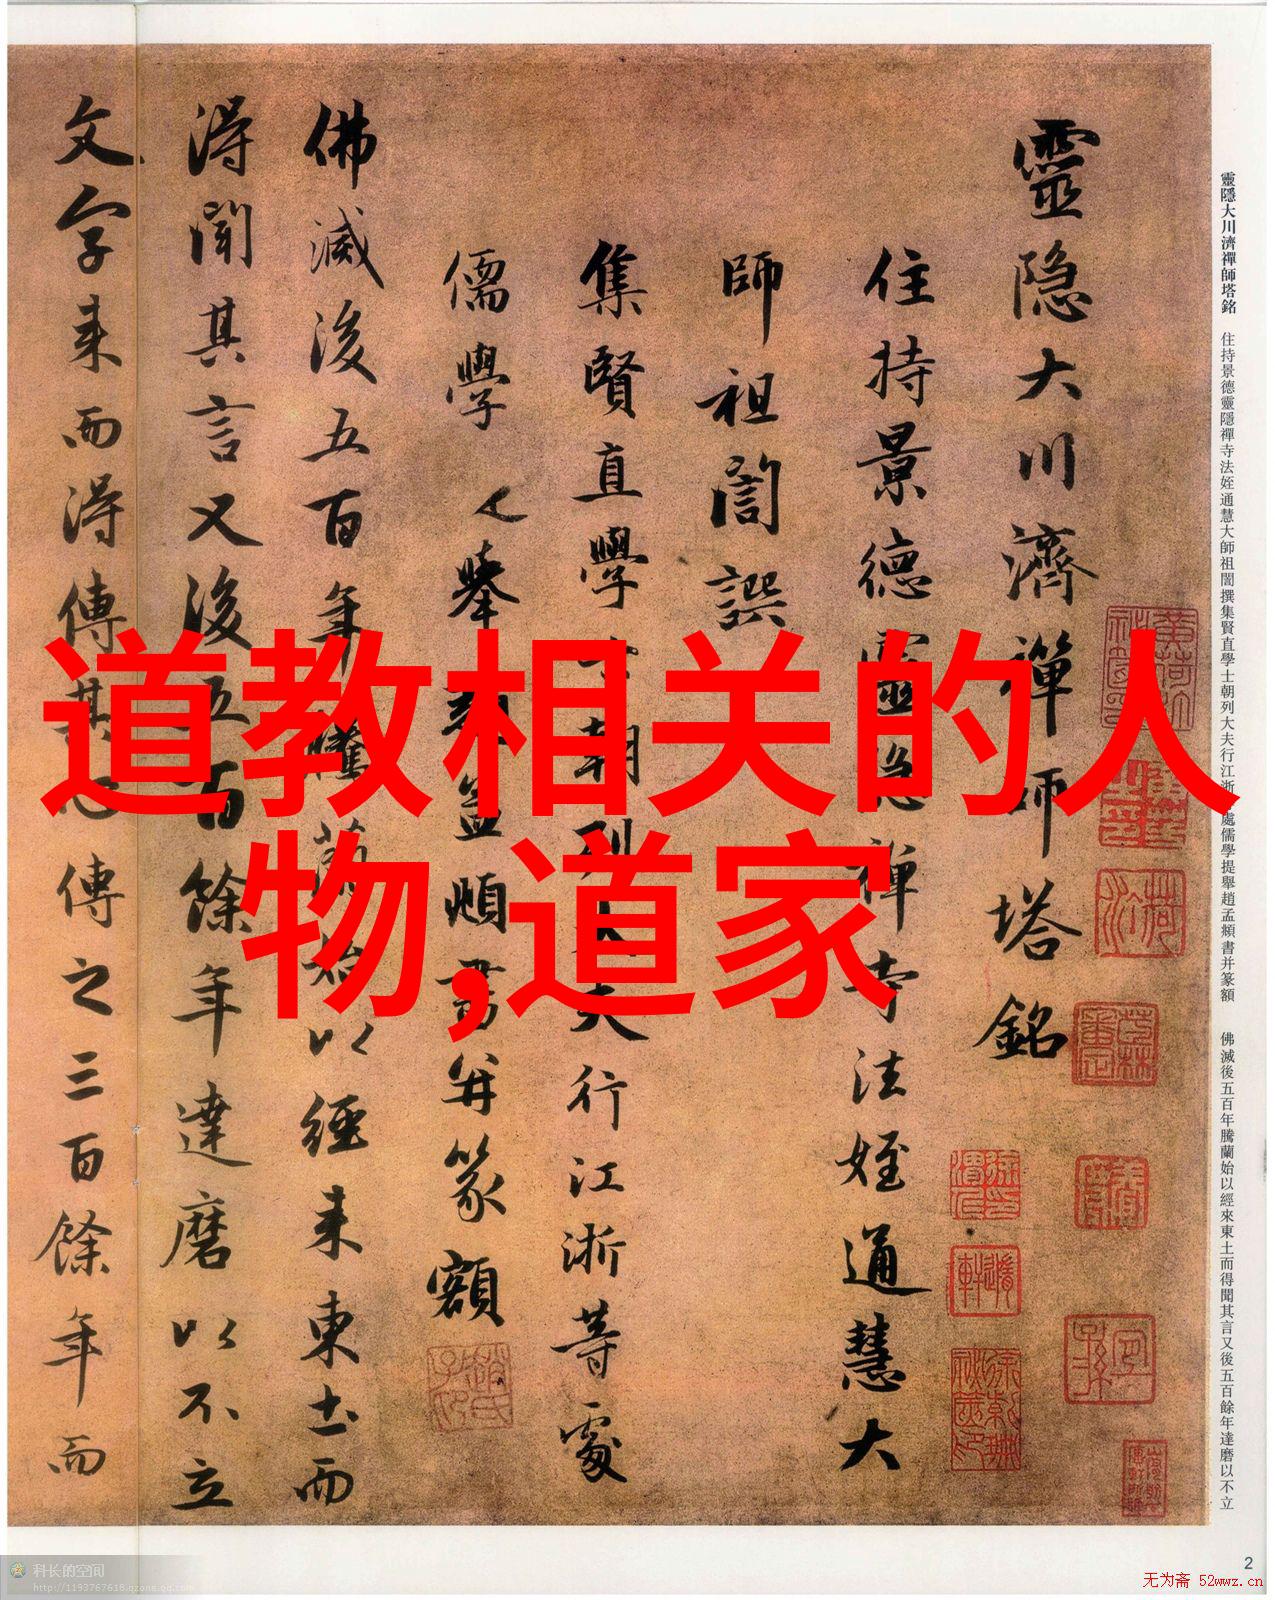 道教相关的人
物,道家
靈隱大川濟禪師塔銘 住持景德靈隱禪寺法姪通慧大師祖誾撰集賢直學士朝列大夫行江浙處儒學提舉趙孟頫書并篆額 佛滅後五百年騰蘭始以經來東土而得聞其言又後五百餘年達磨以不立
靈隐大川濟禪師塔銘
住持景德靈隐禪寺法姪通慧大
師祖誾譔
集賢直學士朝列大夫行江浙等處
儒學提舉趙孟頫書并篆額
佛滅後五百年騰蘭始以經来東土而
得聞其言又後五百餘年達磨以不立
文字来而得傳其心傳之三百餘年而
2
科长的空间
http://1193767618.qzone.qq.com
无为斋 52wwz.cn